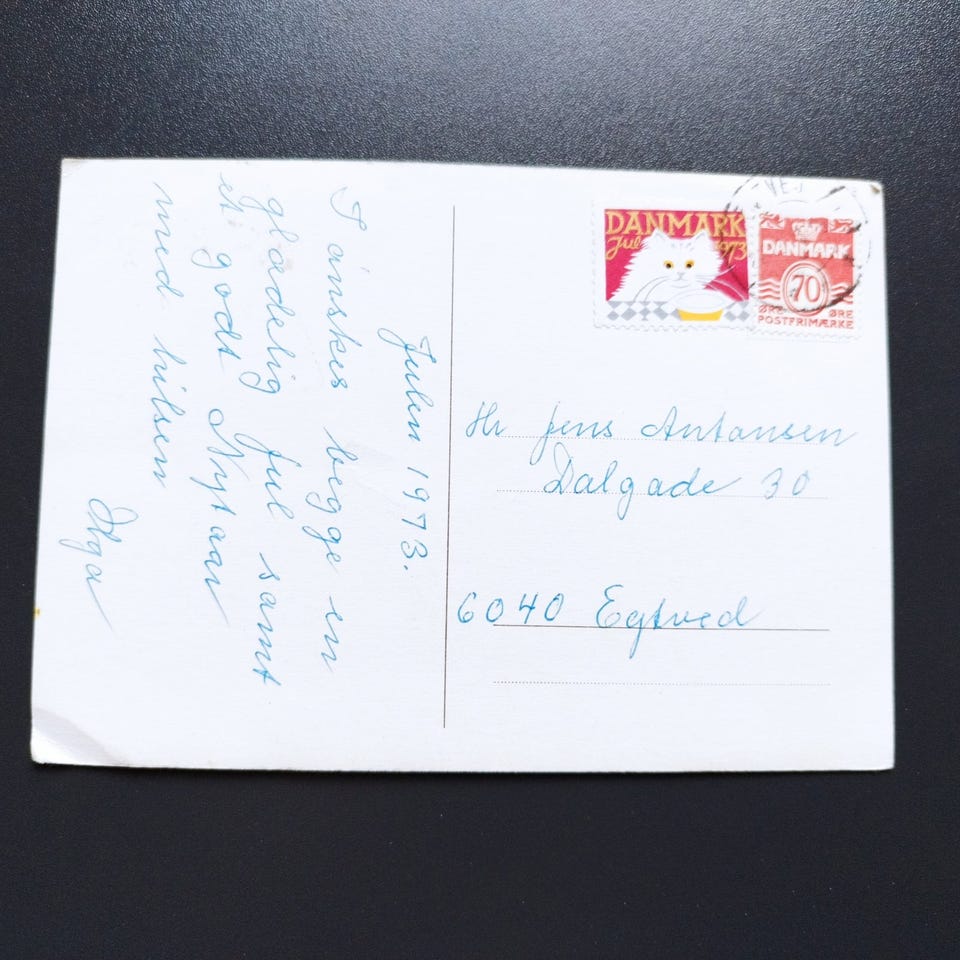 Julen 1973.
I ønskes begge en
glædelig Jul samt
et godt Nytaar
med hilsen
Olga
DANMARK
Jul 1973
VEJ
DANMARK
70
ØRE ØRE
POSTFRIMÆRKE
Hr Jens Antonsen
Dalgade 30
6040 Egtved